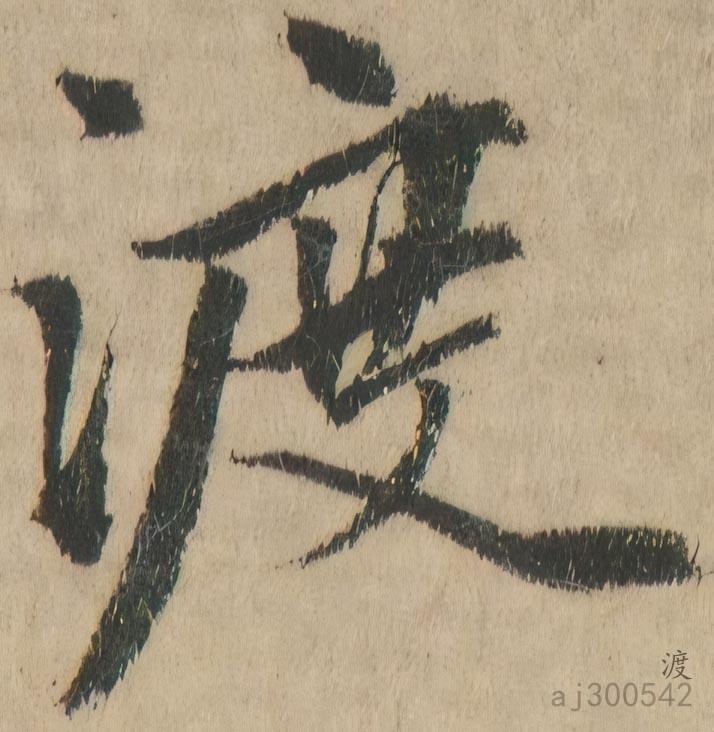 渡
渡
aj300542